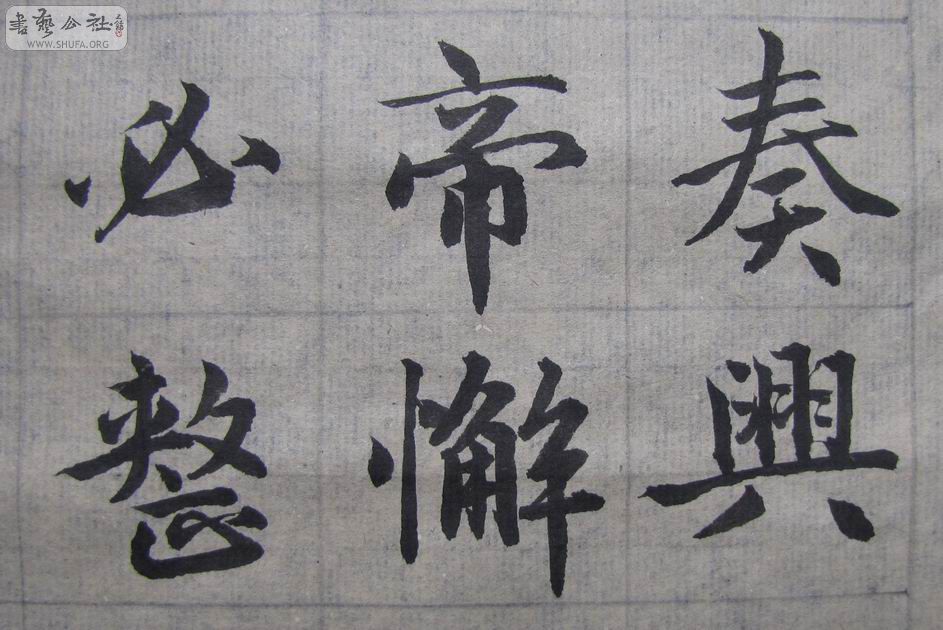 奏興
帝懈
必整
書藝公社
WWW.SHUFA.ORG